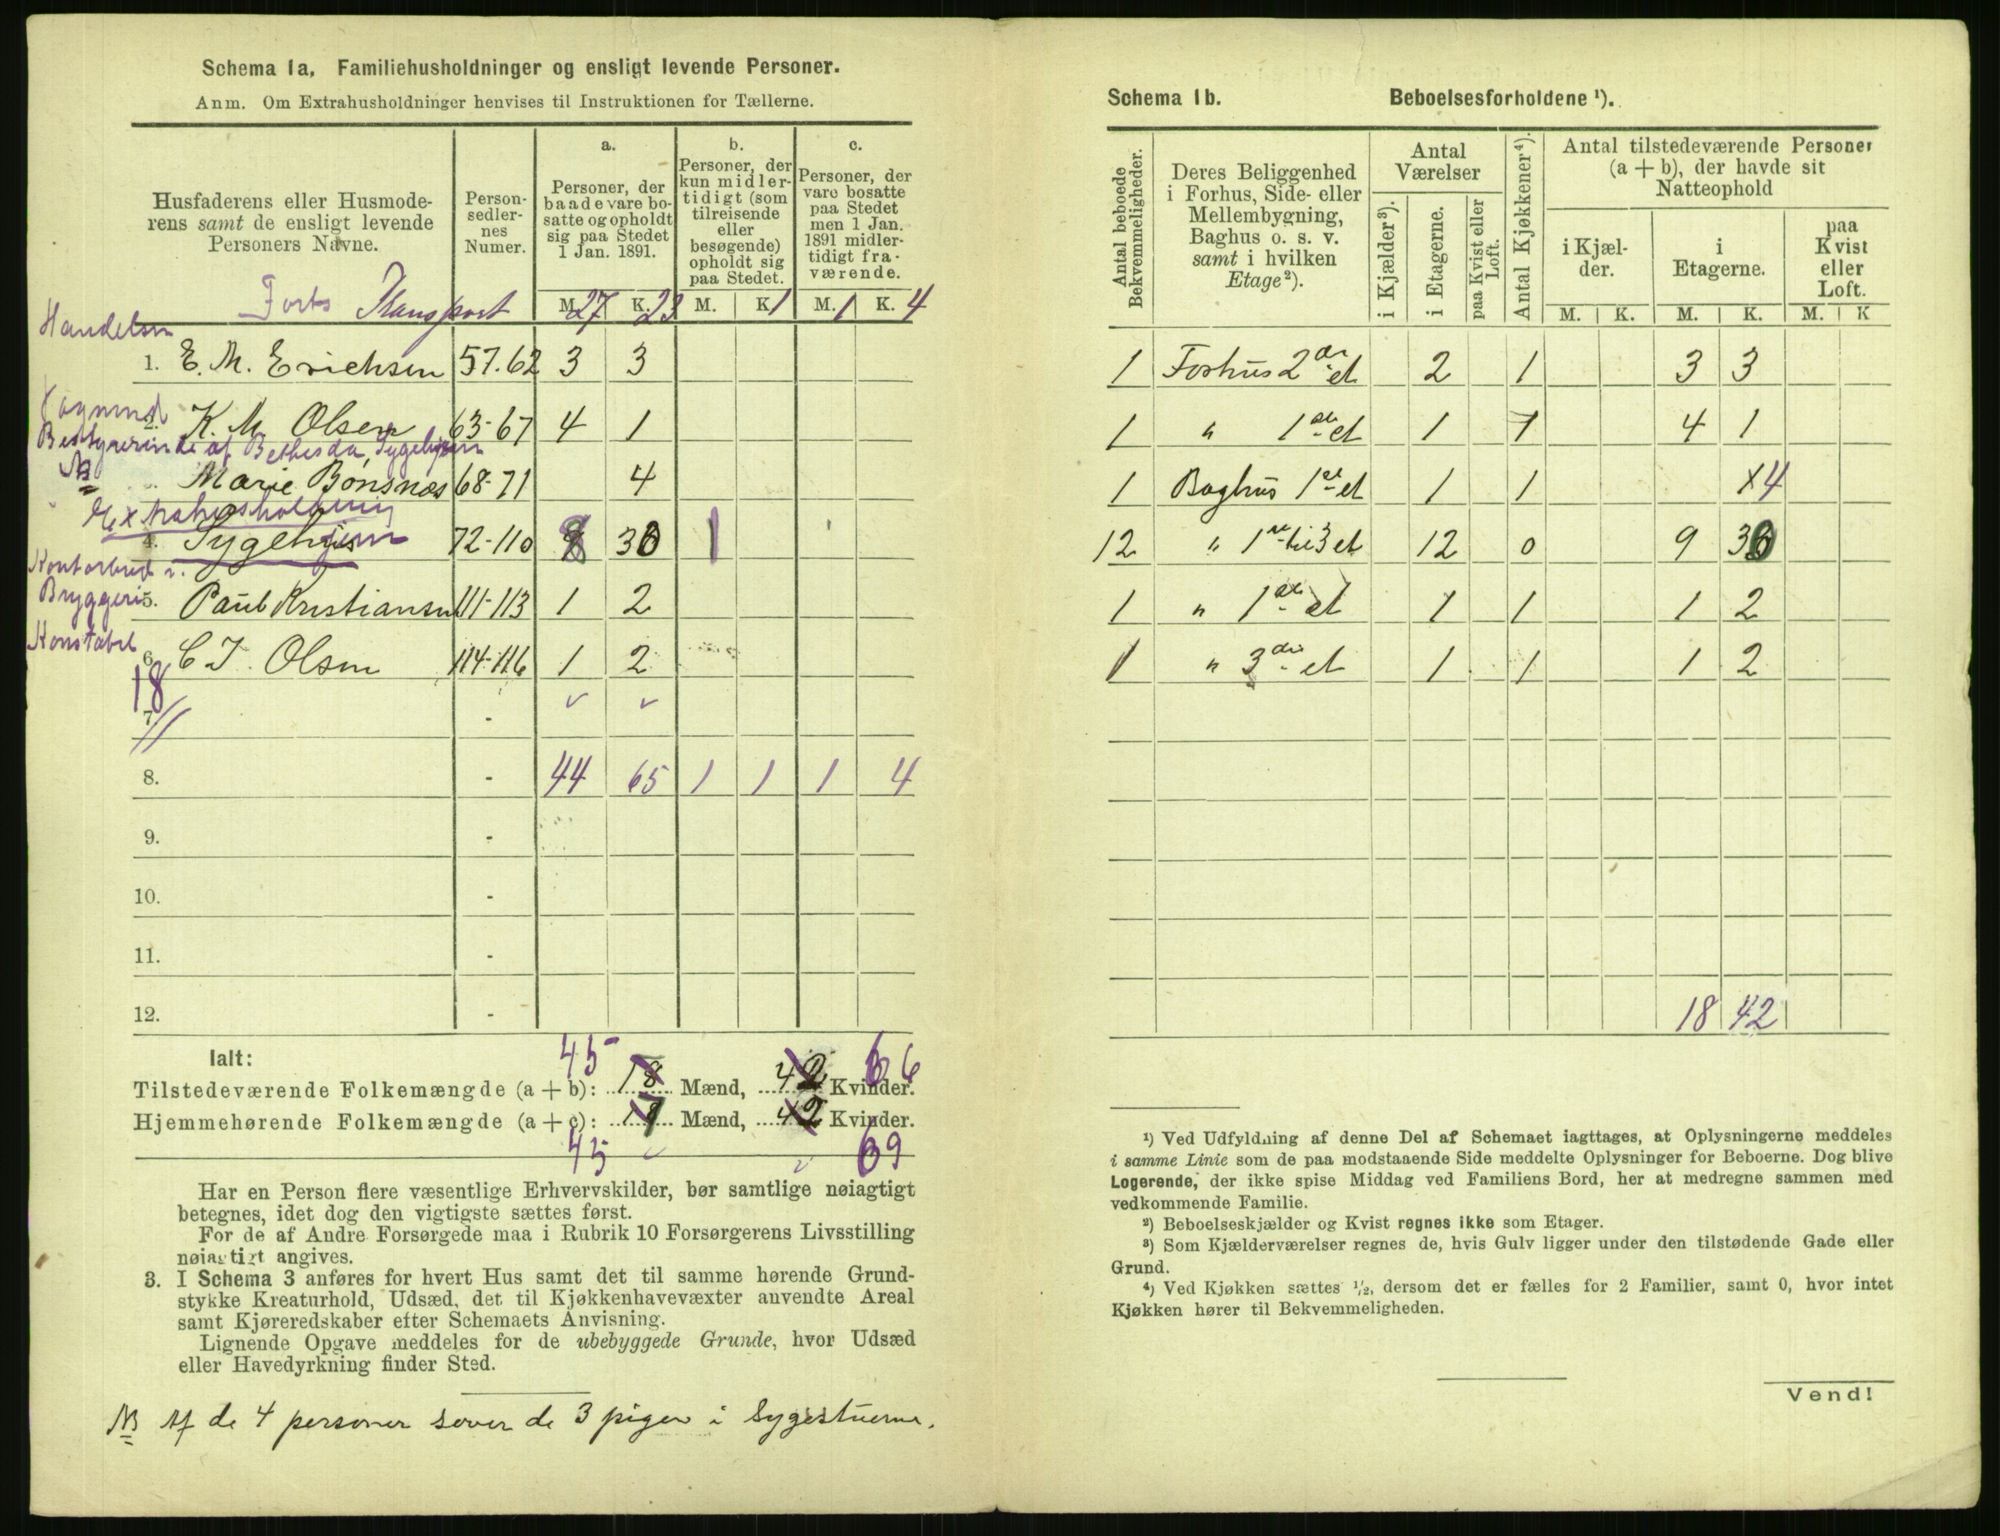 Schema 1a. Familiehusholdninger og ensligt levende Personer.
Anm. Om Extrahusholdninger henvises til Instruktionen for Tællerne.
Husfaderens eller Husmoderens samt de ensligt levende Personers Navne.
Personsedlernes Numer.
a. Personer, der baade vare bosatte og opholdt sig paa Stedet 1 Jan. 1891.
b. Personer, der kun midlertidigt (som tilreisende eller besøgende) opholdt sig paa Stedet.
c. Personer, der vare bosatte paa Stedet men 1 Jan. 1891 midlertidigt fraværende.
M. K. M. K. M. K.
Forts Transport 27 23 1 1 4
Handelsm
1. E. M. Erichsen 57-62 3 3
2. K. M. Olsen 63-67 4 1
Bestyrerinde af Bethesda Sygehjem
NB Marie Bönsnæs 68-71 4
Extrahusholdning
4. Sygehjem 72-110 8 30 1
Kontorbud v. Bryggeri
5. Paul Kristiansen 111-113 1 2
Konstabel
6. C J. Olsen 114-116 1 2
18
7. -
8. - 44 65 1 1 1 4
9. -
10. -
11. -
12. -
Ialt:
45 66
Tilstedeværende Folkemængde (a + b): 18 Mænd, 42 Kvinder.
Hjemmehørende Folkemængde (a + c): 17 Mænd, 42 Kvinder.
45 69
Har en Person flere væsentlige Erhvervskilder, bør samtlige nøiagtigt
betegnes, idet dog den vigtigste sættes først.
For de af Andre Forsørgede maa i Rubrik 10 Forsørgerens Livsstilling
nøiagtigt angives.
3. I Schema 3 anføres for hvert Hus samt det til samme hørende Grund-
stykke Kreaturhold, Udsæd, det til Kjøkkenhavevæxter anvendte Areal
samt Kjøreredskaber efter Schemaets Anvisning.
Lignende Opgave meddeles for de ubebyggede Grunde, hvor Udsæd
eller Havedyrkning finder Sted.
NB Af de 4 personer sover de 3 piger i Sygestuerne.
Schema 1b. Beboelsesforholdene ¹).
Antal beboede Bekvemmeligheder.
Deres Beliggenhed i Forhus, Side- eller Mellembygning, Baghus o. s. v. samt i hvilken Etage²).
Antal Værelser
i Kjælder³).
i Etagerne.
paa Kvist eller Loft.
Antal Kjøkkener⁴).
Antal tilstedeværende Personer (a + b), der havde sit Natteophold
i Kjælder.
i Etagerne.
paa Kvist eller Loft.
M. K. M. K. M. K
1 Forhus 2den et 2 1 3 3
1 " 1ste et 1 1 4 1
1 Baghus 1st et 1 1 X4
12 " 1ste til 3 et 12 0 9 30
1 " 1ste et 1 1 1 2
1 " 3die et 1 1 1 2
18 42
¹) Ved Udfyldning af denne Del af Schemaet iagttages, at Oplysningerne meddeles
i samme Linie som de paa modstaaende Side meddelte Oplysninger for Beboerne. Dog blive
Logerende, der ikke spise Middag ved Familiens Bord, her at medregne sammen med
vedkommende Familie.
²) Beboelseskjælder og Kvist regnes ikke som Etager.
³) Som Kjælderværelser regnes de, hvis Gulv ligger under den tilstødende Gade eller
Grund.
⁴) Ved Kjøkken sættes ¹/₂, dersom det er fælles for 2 Familier, samt 0, hvor intet
Kjøkken hører til Bekvemmeligheden.
Vend!